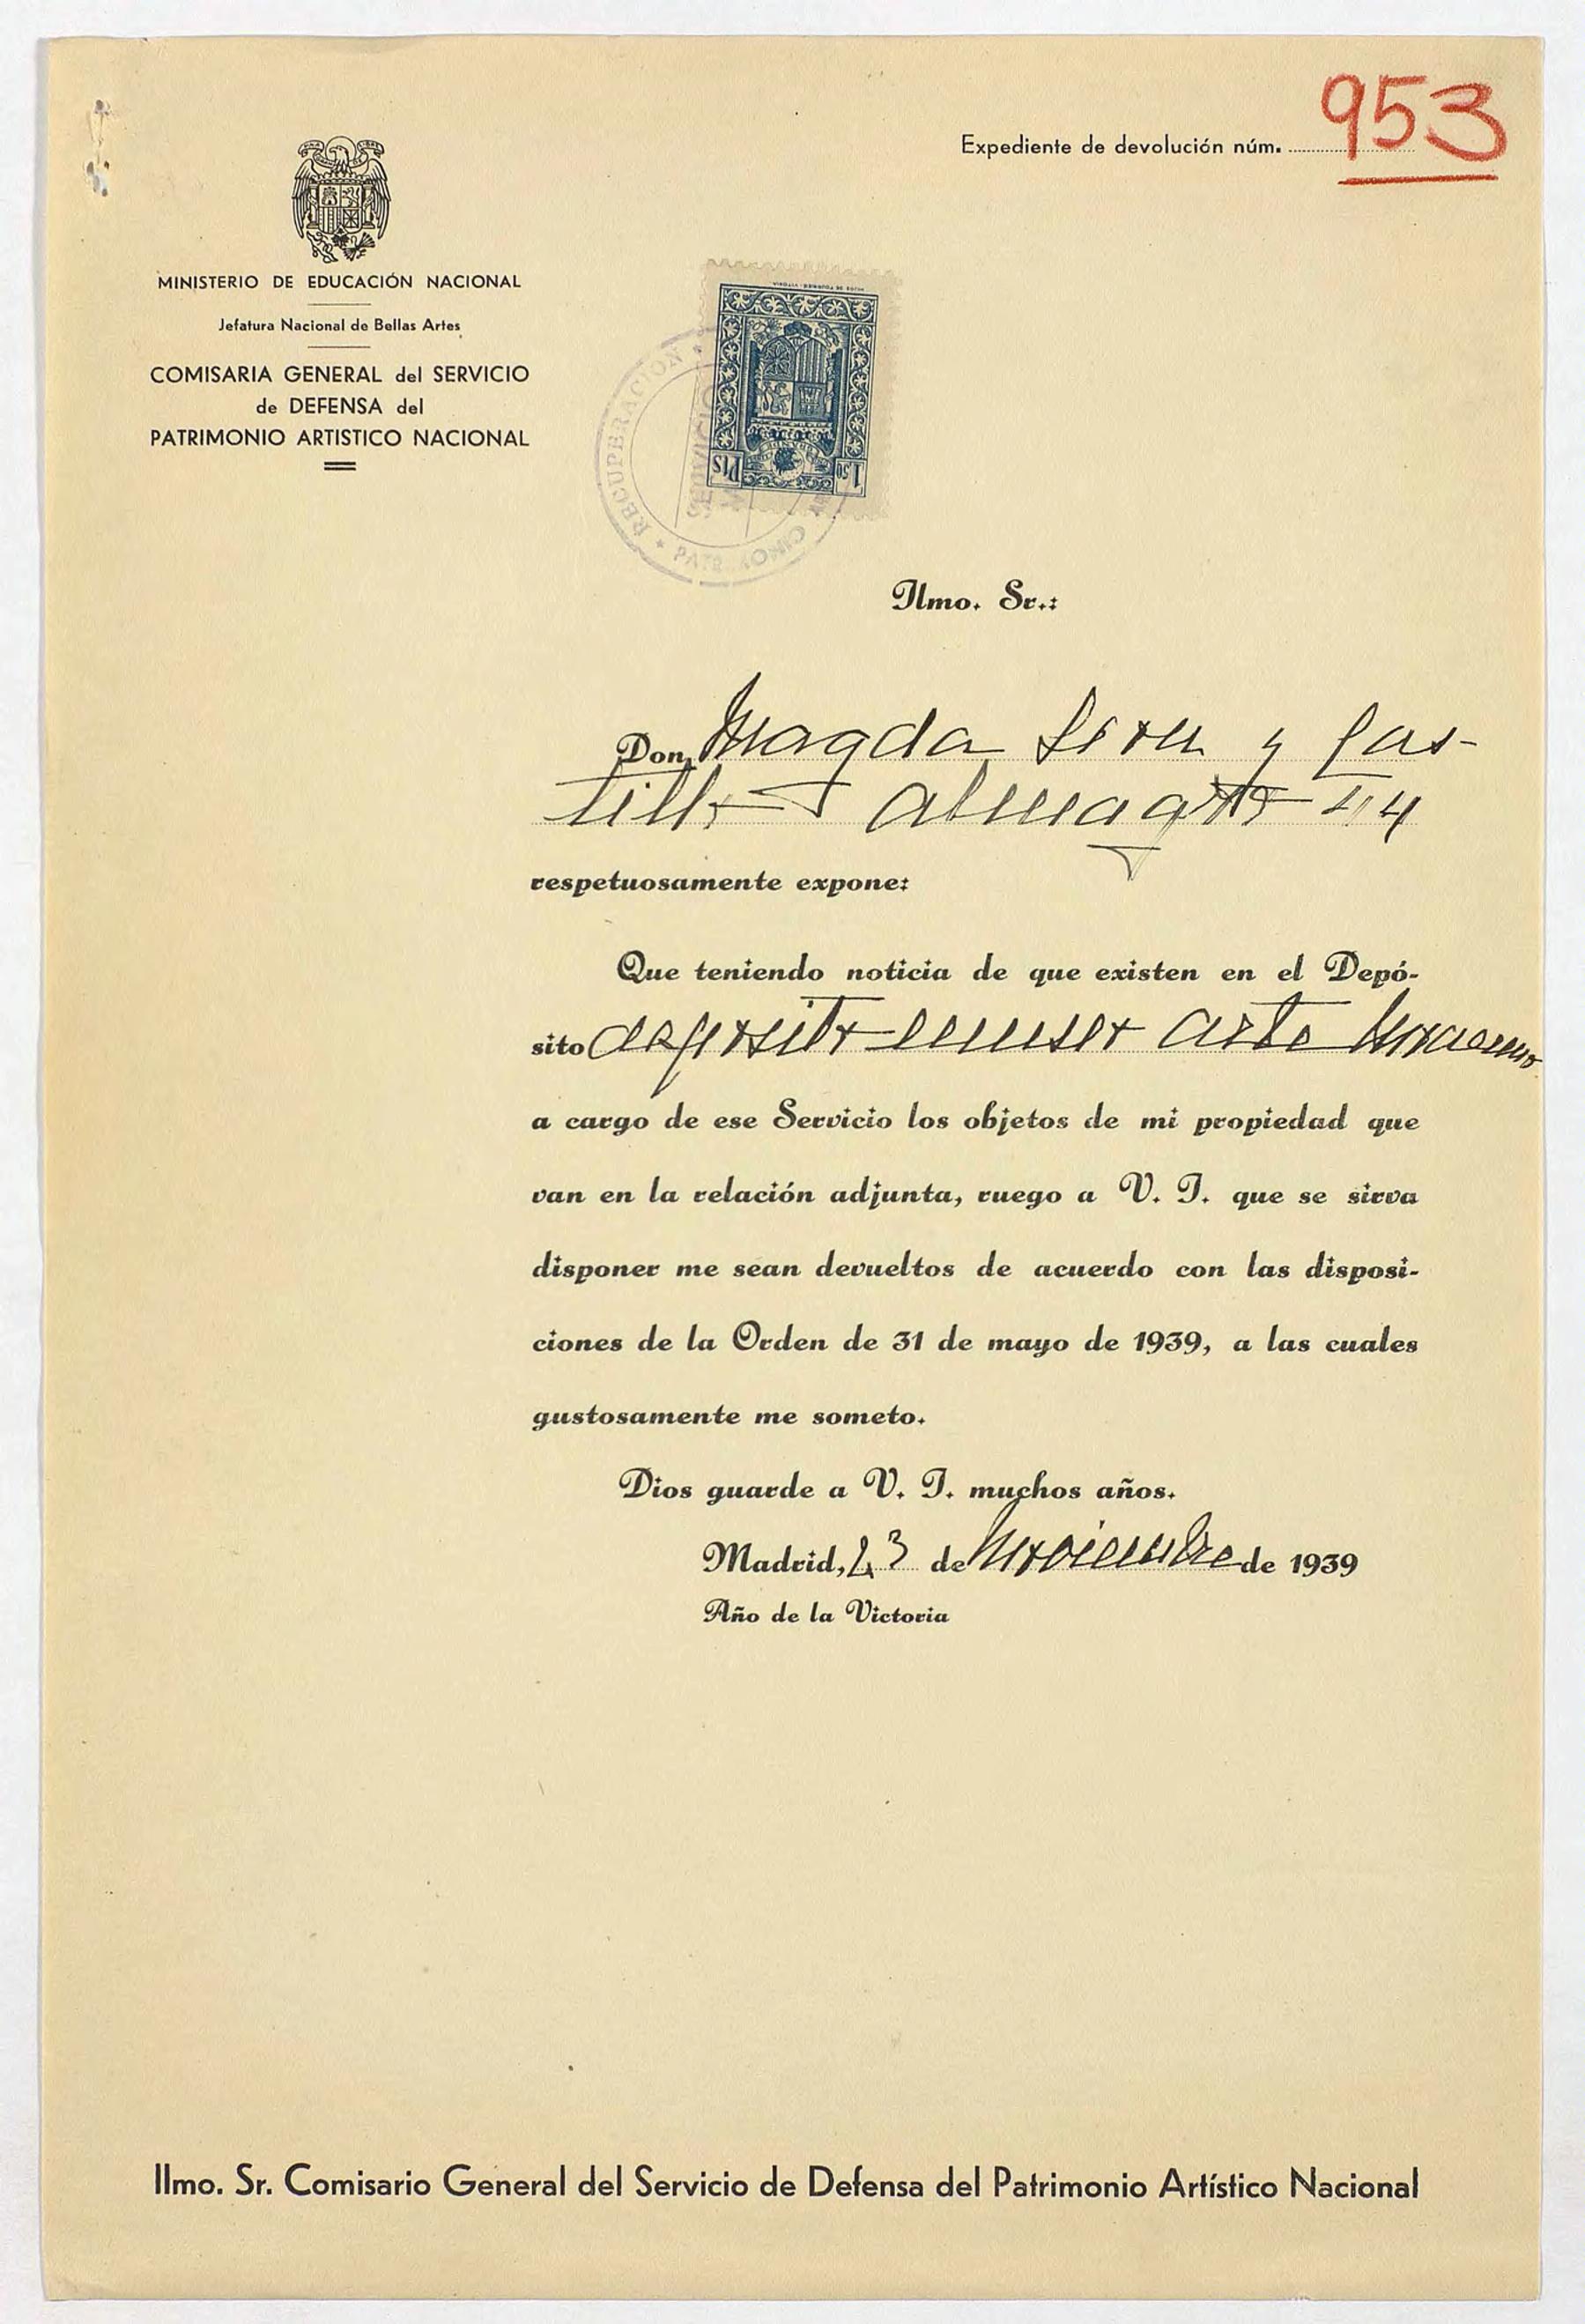 Expediente de devolución núm. 953
MINISTERIO DE EDUCACIÓN NACIONAL
Jefatura Nacional de Bellas Artes
COMISARIA GENERAL del SERVICIO
de DEFENSA del
PATRIMONIO ARTISTICO NACIONAL
HIJOS DE FOURNIER - VITORIA
1,50 Pts
RECUPERACION
SERVICIO
PATRIMONIO
Ilmo. Sr.:
Don Magda y Cas-
tillo Almagro 44
respetuosamente expone:
Que teniendo noticia de que existen en el Depó-
sito deposito museo arte Moderno
a cargo de ese Servicio los objetos de mi propiedad que
van en la relación adjunta, ruego a V. I. que se sirva
disponer me sean devueltos de acuerdo con las disposi-
ciones de la Orden de 31 de mayo de 1939, a las cuales
gustosamente me someto.
Dios guarde a V. I. muchos años.
Madrid, 23 de Noviembre de 1939
Año de la Victoria
Ilmo. Sr. Comisario General del Servicio de Defensa del Patrimonio Artístico Nacional